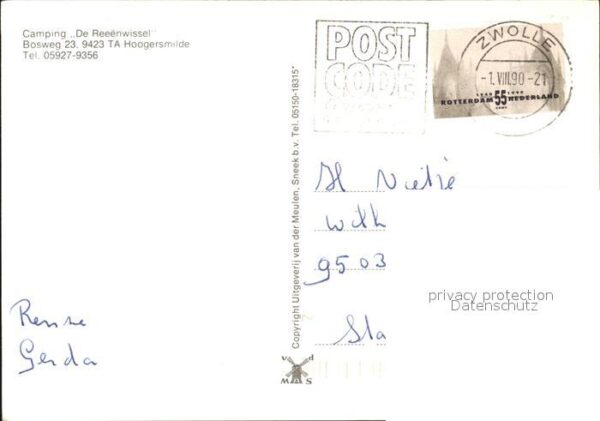 Camping „De Reeënwissel"
Bosweg 23, 9423 TA Hoogersmilde
Tel. 05927-9356
POST
CODE
ZWOLLE
-1.VIII.90-21
1940 1990
ROTTERDAM 55 NEDERLAND
Copyright Uitgeverij van der Meulen, Sneek b.v. Tel. 05150-18315*
9503
Sta
privacy protection
Datenschutz
Rense
Gerda
v d
M S